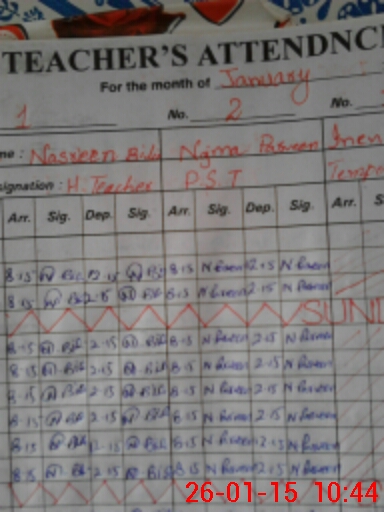 TEACHER'S ATTENDNCE
For the month of January
1 No. 2 No.
me : Nasreen Bibi Najma Parveen
signation : H. Teacher P.S.T
Arr. Sig. Dep. Sig. Arr. Sig. Dep. Sig. Arr. S
8.15 N Bibi 2.15 N Bibi 8.15 N Parveen 2.15 N Parveen
8.15 N Bibi 2.15 N Bibi 8.15 N Parveen 2.15 N Parveen
SUND
8.15 N Bibi 2.15 N Bibi 8.15 N Parveen 2.15 N Parveen
8.15 N Bibi 2.15 N Bibi 8.15 N Parveen 2.15 N Parveen
8.15 N Bibi 2.15 N Bibi 8.15 N Parveen 2.15 N Parveen
8.15 N Bibi 2.15 N Bibi 8.15 N Parveen 2.15 N Parveen
8.15 N Bibi 2.15 N Bibi 8.15 N Parveen 2.15 N Parveen
8.15 N Bibi 2.15 N Bibi 8.15 N Parveen 2.15 N Parveen
26-01-15 10:44